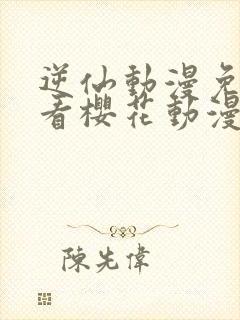 逆仙動漫免
看櫻花動漫
陳先偉